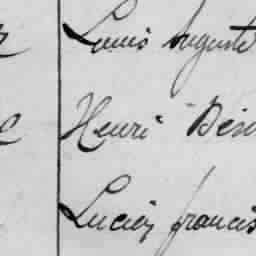 Louis Auguste
Henri Dési
Lucien francis